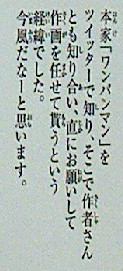 本家「ワンパンマン」を
ツイッターで知り、そこで作者さん
とも知り合い、直にお願いして
作画を任せて貰うという
経緯でした。
今風だなーと思います。